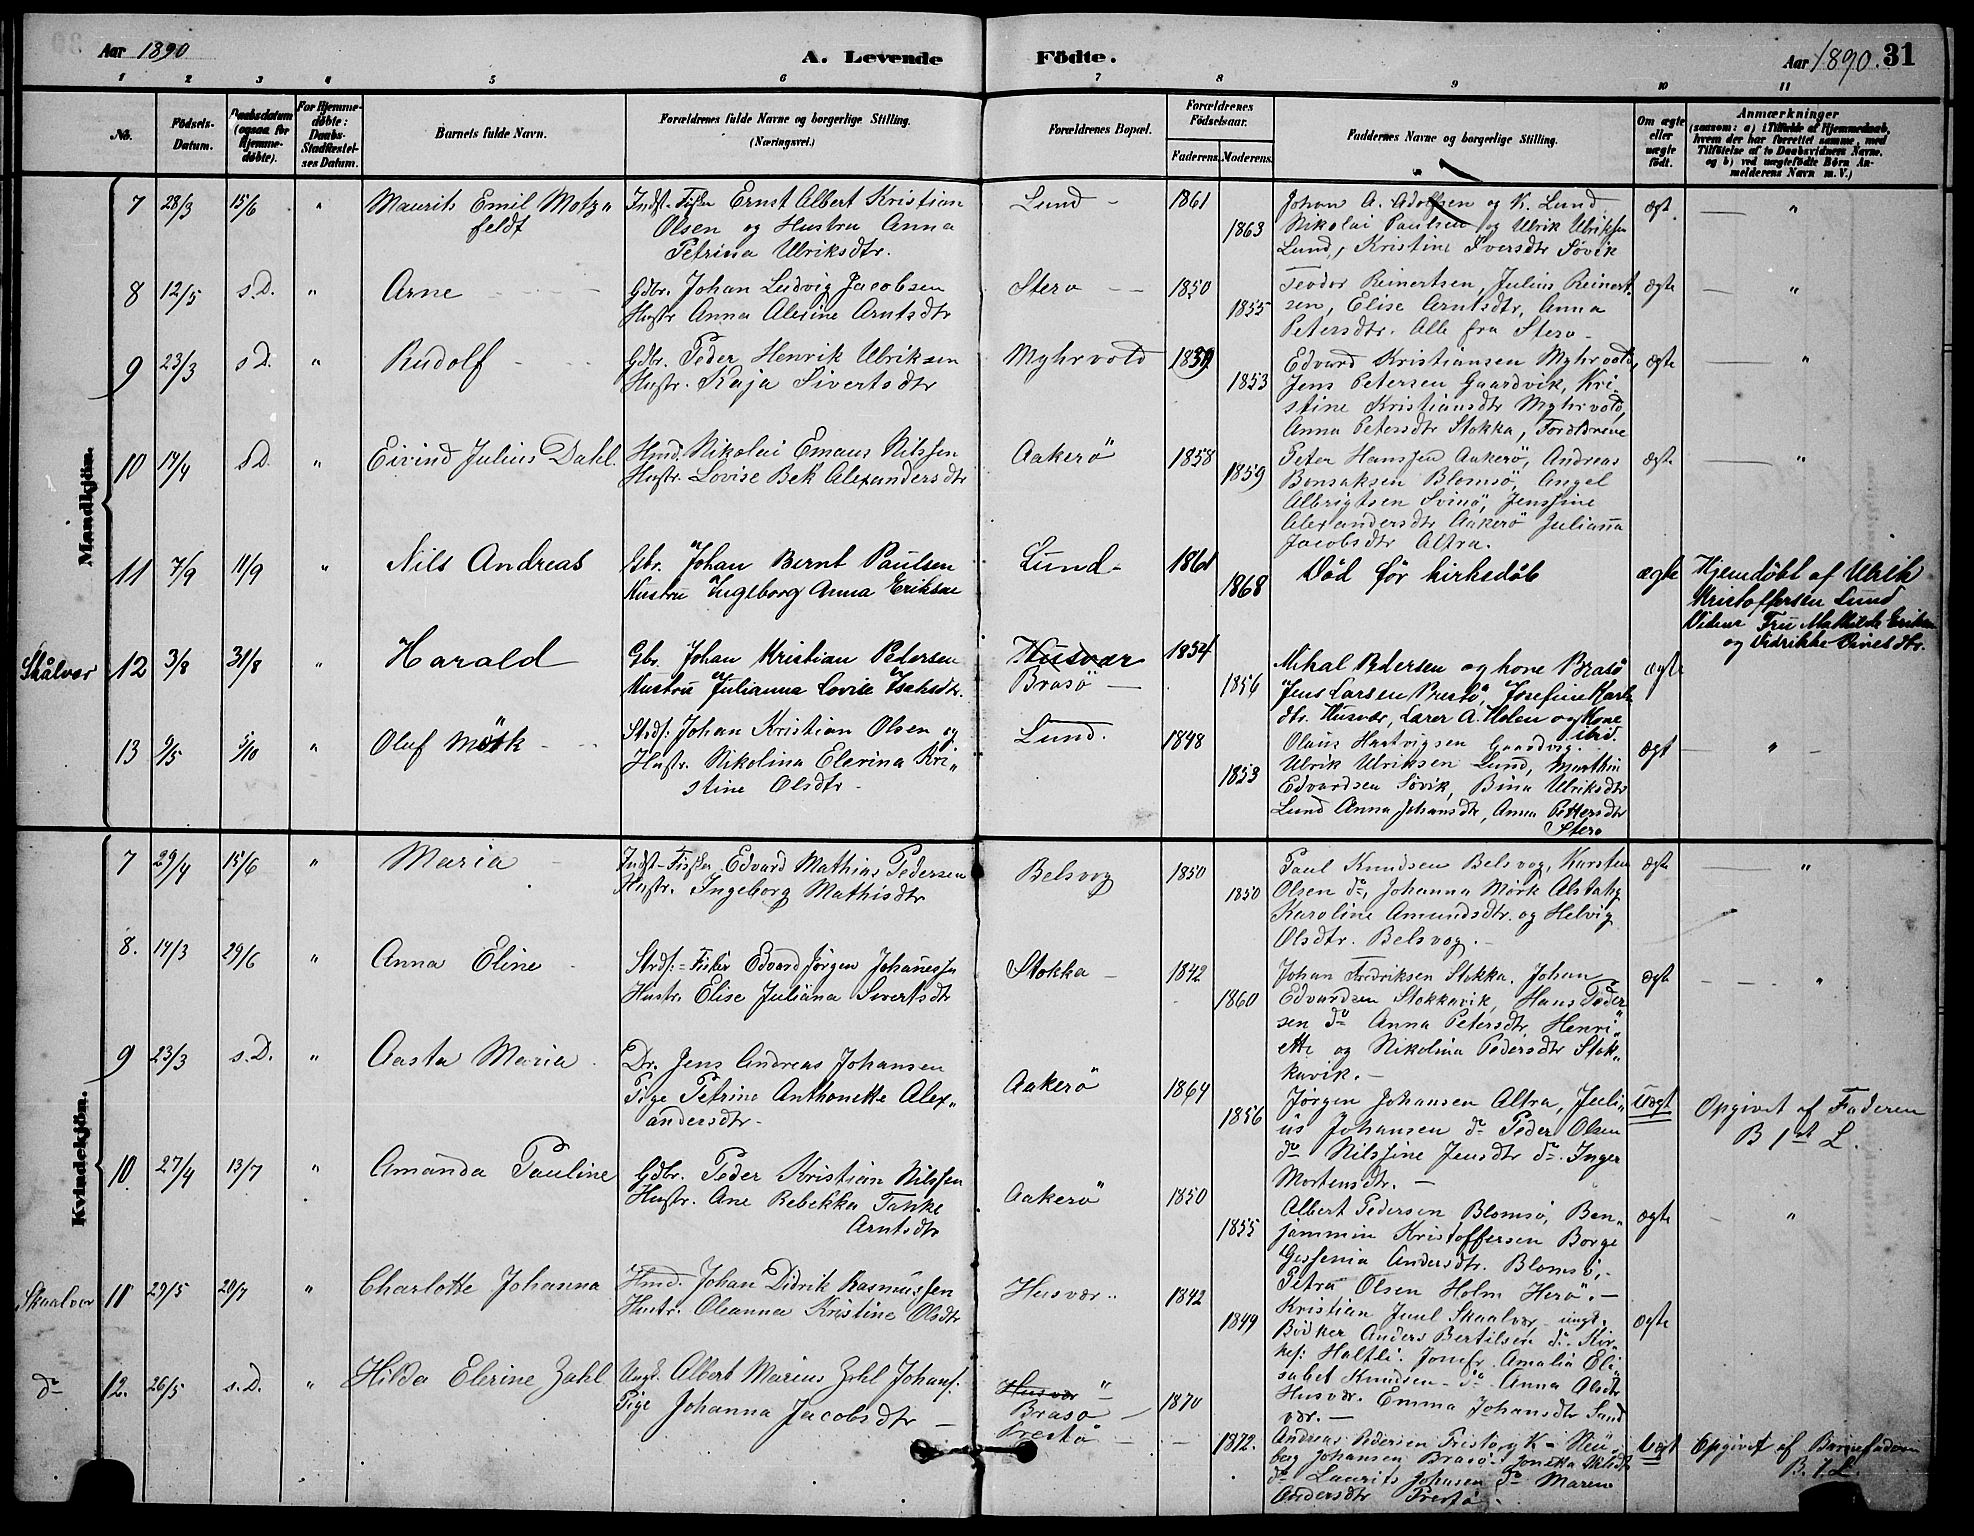 Aar 1890
A. Levende
Födte.
Aar 1890. 31
1 2 3 4 5 6 7 8 9 10 11
No.
Födsels-
Datum.
Daabsdatum
(ogsaa for
Hjemme-
døbte).
For Hjemme-
døbte:
Daabs-
Stadfæstel-
ses Datum.
Barnets fulde Navn.
Forældrenes fulde Navne og borgerlige Stilling.
(Næringsvei.)
Forældrenes Bopæl.
Forældrenes
Födselsaar.
Faderens. Moderens.
Faddernes Navne og borgerlige Stilling.
Om ægte
eller
uægte
født.
Anmærkninger
(saasom: a) i Tilfælde af Hjemmedaab,
hvem der har forrettet samme, med
Tilföielse af to Daabsvidners Navne,
og b) ved uægtefödte Börn An-
melderens Navn m. V.)
Mandkjön.
7 28/3 15/6 " Maurits Emil Motz"
feldt
Indst. Fisker Ernst Albert Kristian
Olsen og Hustru Anna
Petrina Ulriksdtr.
Lund - 1861
1863
Johan A. Adolfsen og K. Lund
Nikolai Paulsen og Ulrik Ulriksen
Lund, Kristine Iversdtr Søvik
ægt. — "
8 12/5 s.D. " Arne
Gdbr. Johan Ludvig Jacobsen
Hustr Anna Alerine Arntsdtr
Stero — 1850
1855
Teodor Reinertsen, Julius Reinert-
sen, Elise Arntsdtr, Anna
Petersdtr. Alle fra Stero
ægte — "
9 23/3 s.D. " Rudolf
Gdbr. Peder Henrik Ulriksen
Hustr. Kaja Sivertsdtr
Myhrvold
1853
Edvard Kristiansen Myhrvold,
Jens Petersen Gaardvik, Kri-
stine Kristiansdtr Myhrvold,
Anna Petersdtr Stokka, Forældrene
ægte — "
10 s.D. " Eivind Julius Dahl.
Hmd. Nikolai Emaus Nilssen
Hustr. Lovise Bek Alexandersdtr
Aakerö 1858
1859
Peter Hanssen Aakerö, Andreas
Bonsaksen Blomsö, Angel
Albrigtsen Svinö, Jenssine
Alexandersdtr Aakerö Julianna
Jacobsdtr Altra.
ægte — "
11 7/9 11/9 " Nils Andreas
Gbr. Johan Bernt Paulsen
Hustru Ingeborg Anna Eriksen
Lund - 1861
1868
Död før kirkedåb
ægte Hjemdöbt af Ulrik
Kristoffersen Lund
Vidner Fru Mathilde Eriksen
og
Skålvær 12 3/8 31/8 " Harald
Gbr. Johan Kristian Pedersen
Hustru Julianna Lovise Isaksdtr.
Husvær
Brasö — 1854
1856
Mikal Pedersen og kone Brasö
Jens Larsen Prestö, Josefine Karls
dtr. Husvær, Lærer A. Helen og Kone
ibid.
ægte
13 9/5 5/10 " Oluf Mörk
Strds: Johan Kristian Olsen og
Hustr. Nikolina Elerina Kri-
stine Olsdtr.
Lund. 1848
1853
Olaus Hartvigsen Gaardvig.
Ulrik Ulriksen Lund, Marthin
Edvardsen Søvik, Bina Ulriksdtr
Lund Anna Johansdtr, Anna Pettersdtr
Stero
ægt — "
Kvindekjön.
7 29/4 15/6 " Maria
Indst-Fisker Edvard Mathias Pedersen
Hustr. Ingeborg Mathisdtr
Belsvog 1850
1850
Paul Knudsen Belsvog, Karsten
Olsen do, Johanna Mörk Alstahg
Karoline Amundsdtr. og Helvig
Olsdtr. Belsvog.
ægte — "
8. 17/3 29/6 " Anna Eline
Strds:-Fisker Edvard Jörgen Johanessen
Hustr. Elise Juliana Sivertsdtr
Stokka - 1842
1860
Johan Fredriksen Stokka. Johan
Edvardsen Stokkavik, Hans Peder
sen do Anna Petersdtr, Henri-
ette og Nikolina Pedersdtr Stok-
kavik. —
ægt — "
9 23/3 s.D. " Aasta Maria
Dr. Jens Andreas Johansen
Pige Petrine Anthonette Alex-
andersdtr-
Aakerö 1864
1856
Jörgen Johansen Altra, Juli-
us Johansen do Peder Olsen
do Nilssine Jensdtr do. Inger
Mortensdtr. —
Uægt Opgivet af Faderen
B 1st L.
10. 27/4 13/7 " Amanda Pauline
Gdbr. Peder Kristian Nilssen
Hustr. Ane Rebekka Tanke
Arntsdtr
Aakerö 1850
1855
Albert Pedersen Blomsö, Ben-
jammin Kristoffersen Borge
Andersdtr. Blomsö,
Petra Olsen Holm Herö. —
ægte - "
Skaalvær 11 29/5 20/7 " Charlotte Johanna
Hmd. Johan Didrik Rasmussen
Hustr. Oleanna Kristine Olsdtr
Husvær.. 1842
1849
Kristian Juul Skaalvær - ungk.
Bödker Anders Bertilsen do. Kir-
kes: Haltli. Jomfr. Amalia Eli-
sabet Knudsen- do Anna Olsdtr
Husvær. Emma Johansdtr Sand
vær. —
ægte
do 12. 26/5 s.D. " Hilda Elerine Zahl
Ungk. Albert Marius Zahl Johans:
Pige Johanna Jacobsdtr —
Husvær "
Brasö —
Prestö — 1870
1872.
Andreas Pedersen Prestö
Johansen Brasö
do Laurits Johansen do Maren
Andersdtr Prestö.
Uægt Opgivet af Barnefaderen
B. 1. L.